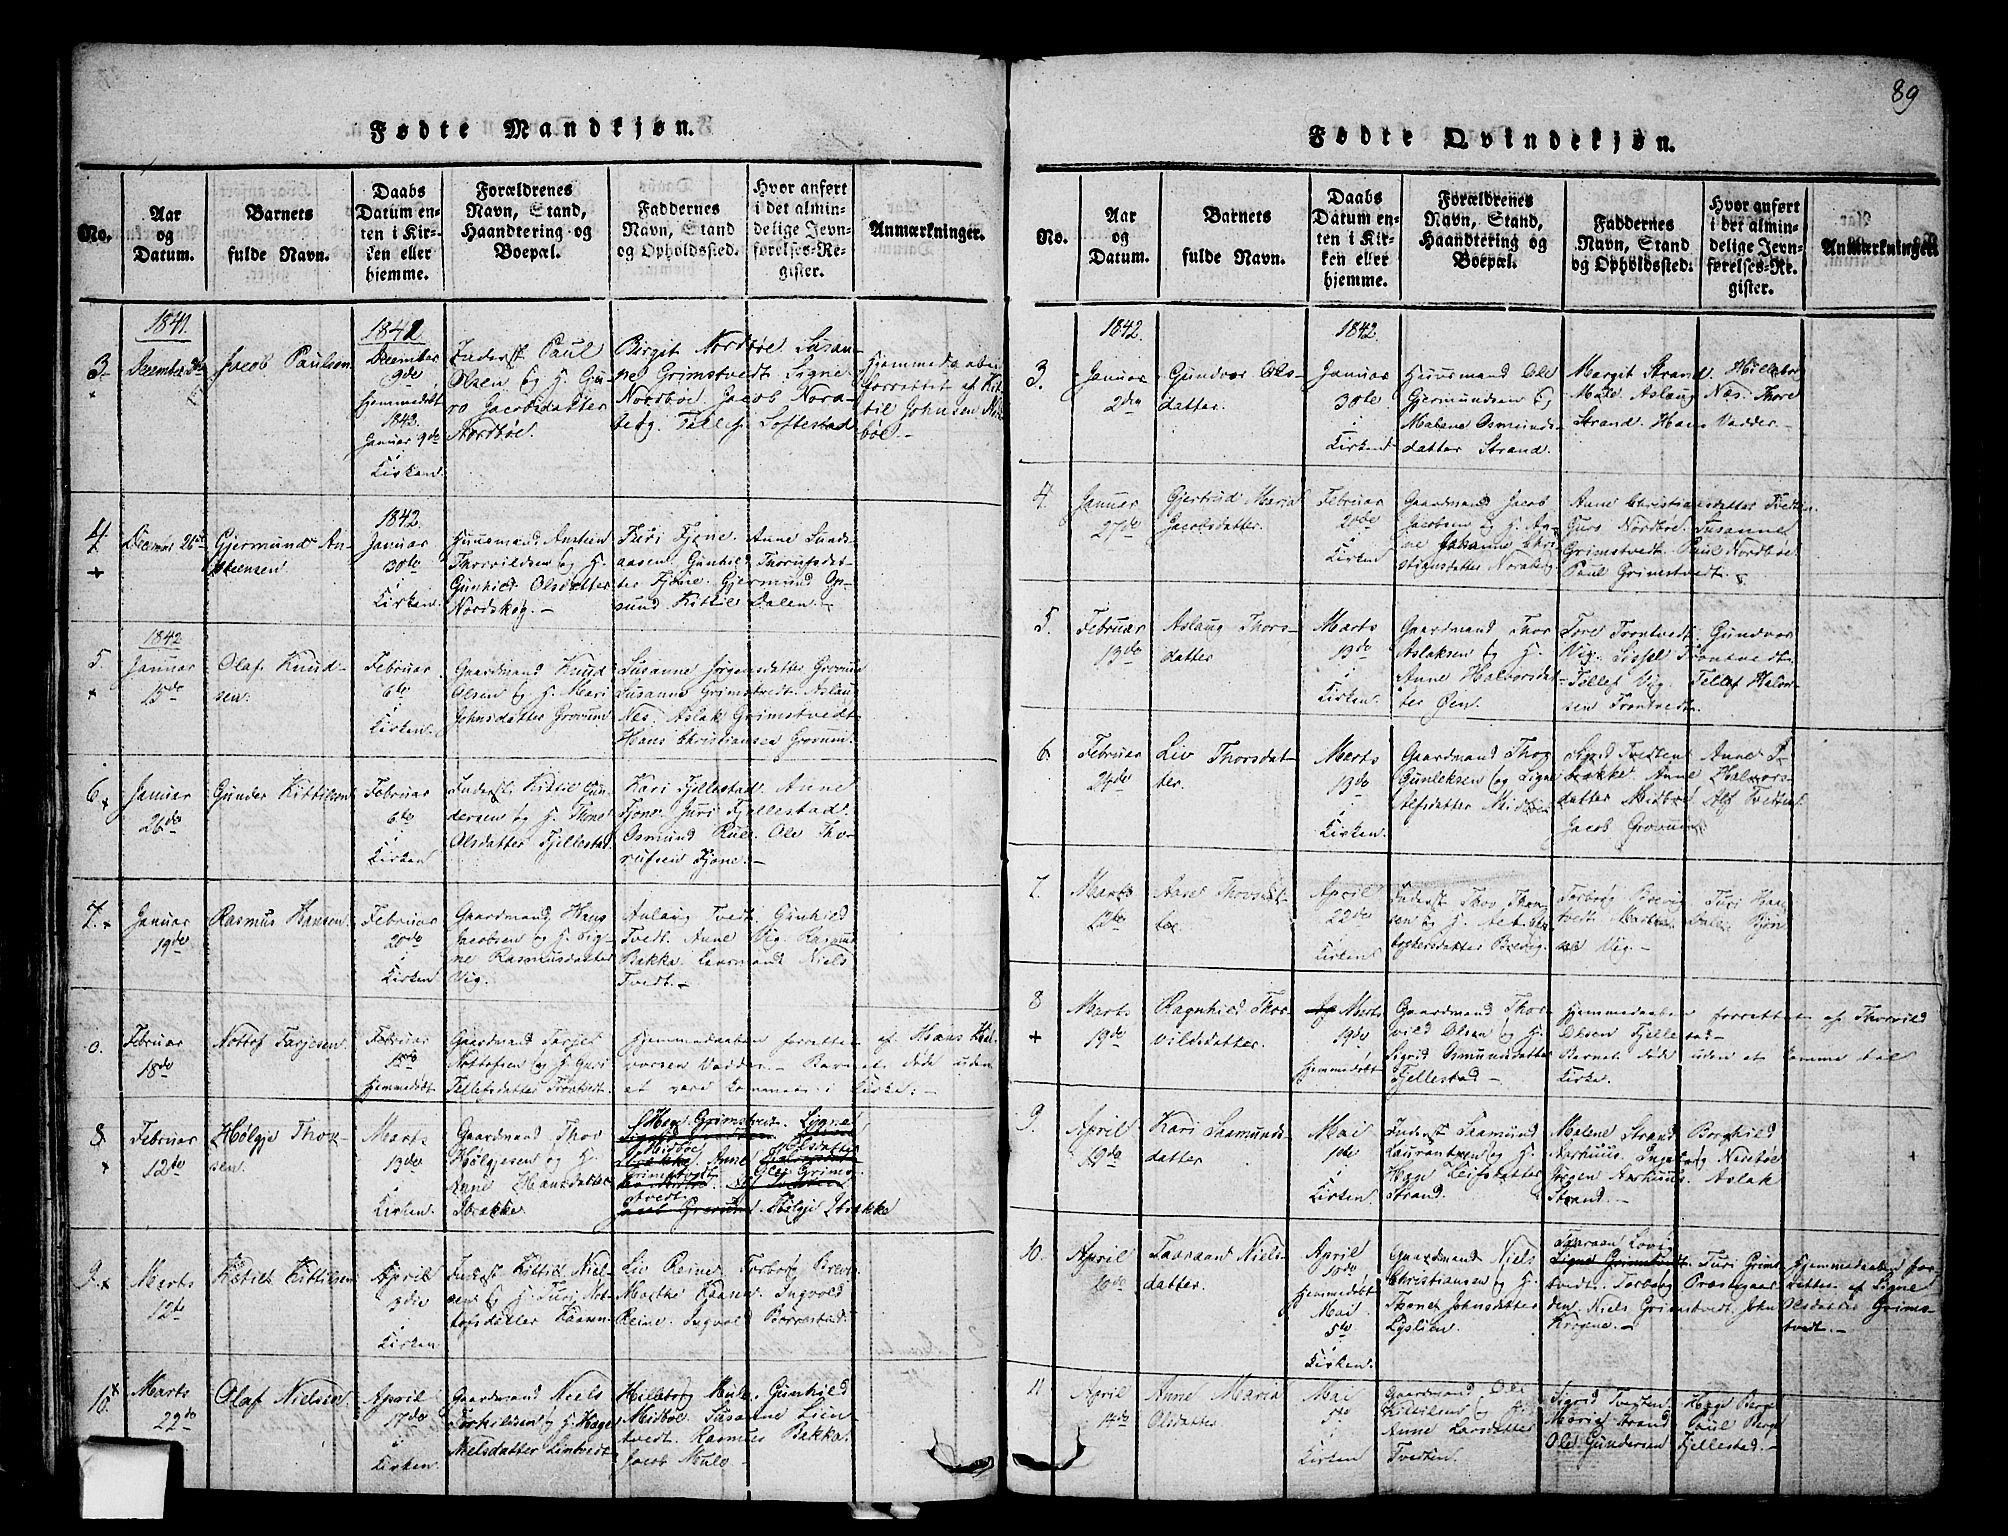 89
Fødte Mandkjøn.
No.
Aar
og
Datum.
Barnets
fulde Navn.
Daabs
Datum en-
ten i Kir-
ken eller
hjemme.
Forældrenes
Navn, Stand,
Haandtering og
Boepæl.
Faddernes
Navn, Stand
og Opholdssted.
Hvor anført
i det almin-
delige Jevn-
førelses-Re-
gister.
Anmærkninger.
3.
1841.
December
Jacob Paulsen
1842
December
9de
hjemmedøbt
1842.
Januar 9de
i
Kirken
Inderst Paul
Olsen og H. Gu-
ro Jacobsdatter
Nordbøe.
Birgit Nordbøe. Susan-
ne Grimstvedt. Signe
Nordbøe. Jacob Nora-
berg. Tellef Loftestad
Hjemmedaaben
forrettet af Kit-
til Johnsen Nord-
bøe.-
4.
+
December 26de
Gjermund An-
steensen
1842.
Januar
30te
i
Kirken.
Huusmand Ansteen
Thorvildsen og H.
Gunhild Olsdatter
Nordskog.-
Turi Fjone. Anne Sunds-
aasen. Gunhild Thorufsdat-
ter Fjone. Gjermund Op-
sund. Kittil Dalen.-
5.
1842
Januar
15de
Olaf Knud-
sen.
Februar
6te
i
Kirken.
Gaardmand Knud
Olsen og H. Mari
Johnsdatter Grovum
Susanne Jørgensdatter Grovum
Susanne Grimstvedt. Aslaug
Nes. Aslak Grimstvedt
Hans Christiansen Grovum.
6.
Januar
26de
Gunder Kittilsen
Februar
6te
i
Kirken
Inderst Kittil Gun-
dersen og H. Thone
Olsdatter Fjellestad
Kari Fjellestad. Anne
Fjone. Juri Fjellestad.
Osmund Rui. Ole Tho-
rufsen Fjone.-
7.
Januar
19de
Rasmus Hansen.
Februar
20de
i
Kirken
Gaardmand Hans
Jacobsen og H. Sig-
ne Rasmusdatter
Vig.
Aslaug Tvedt. Gunhild
Tvedt. Anne Vig. Rasmus
Bakka. Niels
Tvedt.-
o.
Februar
18de
Nottof Tarjesen.
Februar
hjemmedøbt
Gaardmand Tarjei
Nottofsen og H. Guri
Tellefsdatter Trontvedt
Hjemmedaaben forrettet af Hans Hal-
vorsen Vadder.- Barnet døde uden
at være kommen i Kirke.-
8.
Februar
12te
Hølgje Thor-
sen.
Marts
13de
i
Kirken
Gaardmand Thor
Hølgjesen og H.
Anne Hansdatter
Bakke
Hæge Grimstvedt. Signe
Midbøe
Anne Olsdatter
Grimstvedt. Olej Grims-
tvedt.
Hølgje
9.
Marts
12te
Kittil Kittilsen
April
3die
i
Kirken
Inderst Kittil Niel-
sen og H. Turi Not-
tofsdatter Kaasen
Liv Reine. Torborg
Marthe Kaasen. Ingvold
Reine. Ingvold Borrestad.
10.
Marts
22de
Olaf Nielsen.
April
17de
i
Kirken.
Gaardmand Niels
Torkilsen og H. Hæge
Nielsdatter Lintvedt
Hilleborg Mule. Gunhild
Midbøe. Susanne Lien-
tvedt. Rasmus Bakka.
Jacob Mule
Fødte Qvindekjøn.
No.
Aar
og
Datum.
Barnets
fulde Navn.
Daabs
Datum en-
ten i Kir-
ken eller
hjemme.
Forældrenes
Navn, Stand,
Haandtering og
Boepæl.
Faddernes
Navn, Stand
og Opholdssted.
Hvor anført
i det almin-
delige Jevn-
førelses-Re-
gister.
Anmærkninger.
3.
1842.
Januar
2den
Gundvor Ols-
datter.
1842.
Januar
30te
i
Kirken
Huusmand Ole
Gjermundsen og
Malene Osmunds-
datter Strand.
Margit Strand. Hilleborg
Mule. Aslaug Nes. Thore
Strand. Hans Vadder-
4.
Januar
27de
Gjertrud Maria
Jacobsdatter.
Februar
20de
i
Kirken
Gaardmand Jacob
Jacobsen og H. An-
ne Johanne Chri-
stiansdatter Noraberg
Anne Christiansdatter Tvedten
Guro Nordbøe. Susanne
Grimstvedt. Paul Nordbøe
Paul Grimstvedt.-
5.
Februar
13de
Aslaug Thors-
datter
Marts
13de
i
Kirken
Gaardmand Thor
Aslaksen og H.
Anne Halvorsdat-
ter Øen.
Tore Trontvedt. Gundvor
Vig. Lissel Trontvedt.
Tellef Vig. Tellef Halvor-
sen Trontvedt.
6.
Februar
24de
Liv Thorsdat-
ter.
Marts
13de
i
Kirken.
Gaardmand Thor
Gunleksen og Signe
Alfsdatter Midbøe
Sigrid Tvedten. Anne
Bakke. Anne Halvors-
datter Midbøe. Alf Tvedten
Jacob Grovum
7.
Marts
12te
Aase Thovsdat-
ter
April
22de
i
Kirken
Inderst Thov
Brevig.
Torborg Brevig. Turi
Vig.-
8
+
Marts
19de
Ragnhild Thor-
vildsdatter.
Marts
19de
hjemmedøbt
Gaardmand Thor-
vild Olsen og H.
Sigrid Osmundsdatter
Fjellestad-
Hjemmedaaben forrettet af Thorvild
Olsen Fjellestad-
Barnet døde uden at komme til
Kirke.
9.
April
10de
Kari Saamunds-
datter
Mai
1ste
i
Kirken
Inderst Saamund
Laurantsen og H.
Hæge Leifsdatter
Strand.
Malene Strand. Borghild
Aarhuus. Ingeborg Nordbøe
Jørgen Aarhuus. Aslak
Strand.-
10.
April
10de
Taaraand Niels-
datter.
April
10de
hjemmedøbt
Mai
5te
i
Kirken.
Gaardmand Niels
Christiansen og H.
Thone Johnsdatter
Lyslien.
Signe Grimstvedt. Turi Grims-
tvedt. Torborg Præstgaar-
den. Niels Grimstvedt. John
Krogene.-
Hjemmedaaben for-
rettet af Signe
Olsdatter Grims-
tvedt.-
11
April
14de
Anne Maria
Olsdatter.
Mai
5te
i
Kirken
Gaardmand Ole
Kittilsen og H.
Anne Larsdatter
Tvedten.
Sigrid Tvedten. Hæge Berge
Marie Strand. Paul Berge
Ole Gundersen Fjellestad.-